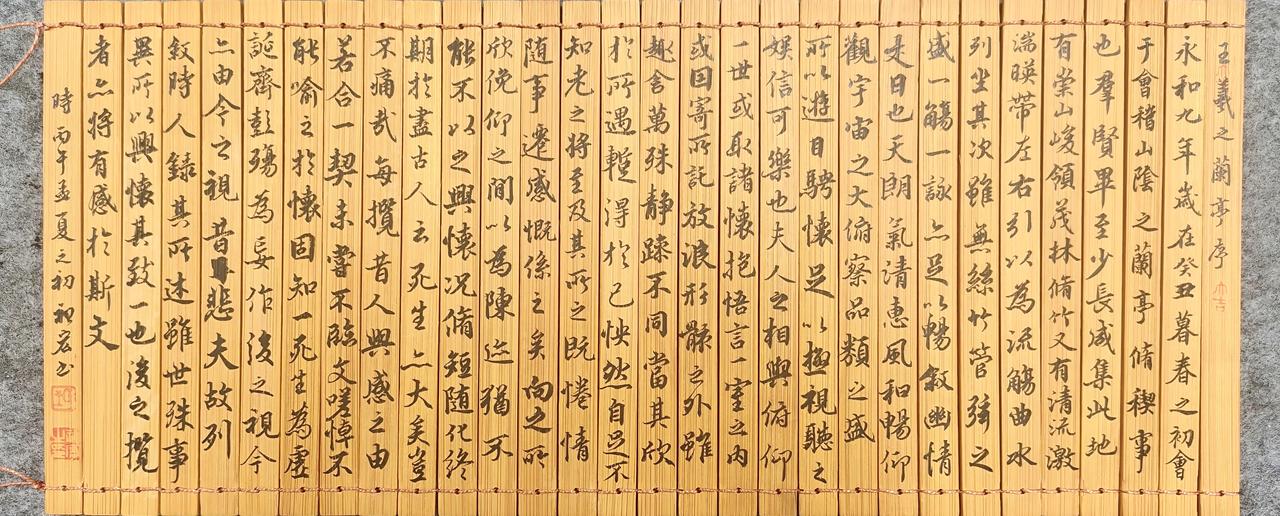 王羲之蘭亭序 大吉
永和九年歲在癸丑暮春之初會
于會稽山陰之蘭亭脩稧事
也羣賢畢至少長咸集此地
有崇山峻領茂林脩竹又有清流激
湍暎帶左右引以為流觴曲水
列坐其次雖無絲竹管弦之
盛一觴一詠亦足以暢敘幽情
是日也天朗氣清惠風和暢仰
觀宇宙之大俯察品類之盛
所以遊目騁懷足以極視聽之
娛信可樂也夫人之相與俯仰
一世或取諸懷抱悟言一室之內
或因寄所託放浪形骸之外雖
趣舍萬殊靜躁不同當其欣
於所遇蹔得於己怏然自足不
知老之將至及其所之既惓情
隨事遷感慨係之矣向之所
欣俛仰之間以為陳迹猶不
能不以之興懷況脩短隨化終
期於盡古人云死生亦大矣豈
不痛哉每攬昔人興感之由
若合一契未嘗不臨文嗟悼不
能喻之於懷固知一死生為虛
誕齊彭殤為妄作後之視今
亦由今之視昔悲夫故列
敘時人錄其所述雖世殊事
異所以興懷其致一也後之攬
者亦將有感於斯文
時丙午孟夏之初宏书